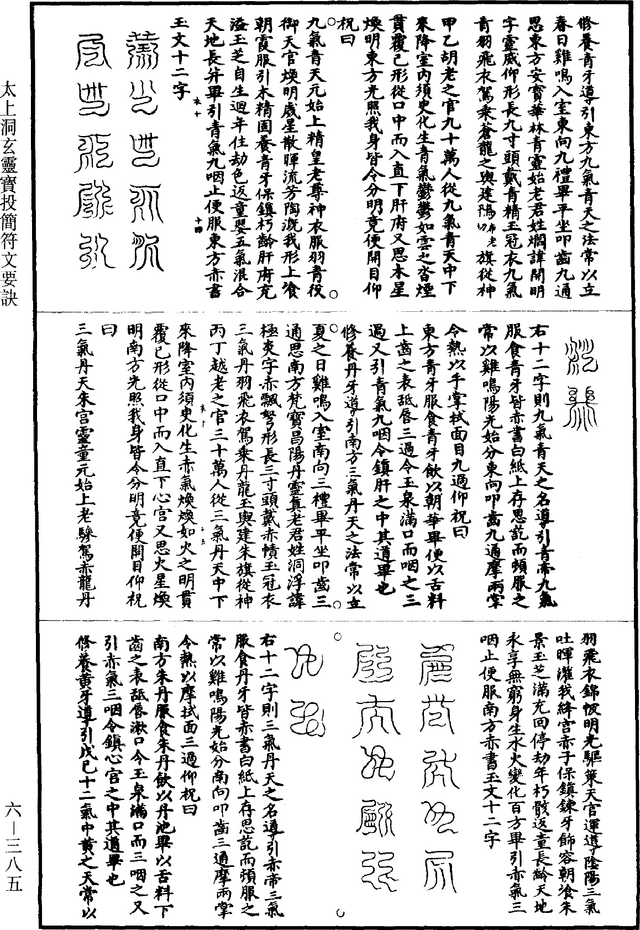 太上洞玄靈寶投簡符文要訣
修養青牙導引東方九氣青天之法常以立
春日雞鳴入室東向九禮畢平坐叩齒九通
思東方安寶華林青靈始老君姓爛諱開明
字靈威仰形長九寸頭戴青精玉冠衣九氣
青羽飛衣駕乘蒼龍之輿建鶉旗從神
甲乙胡老之官九十萬人從九氣青天中下
來降室内須臾化生青氣鬱鬱如雲之沓煙
貫覆己形從口中而入直下肝府又思木星
煥明東方光照我身皆令分明竟便開目仰
祝曰
九氣青天元始上精皇老尊神衣服羽青役
御天官煥明歲星散暉流芳陶溉我形上飡
朝霞服引木精固養青牙保鎮朽齡肝府充
溢玉芝自生迴年住劫色返童嬰五氣混合
天地長并畢引青氣九咽止便服東方赤書
玉文十二字
右十二字則九氣青天之名導引青帝九氣
服食青牙皆赤書白紙上存思訖而頓服之
常以雞鳴陽光始分東向叩齒九通摩兩掌
令熱以手掌拭面目九過仰祝曰
東方青牙服食青牙飲以朝華畢便以舌料
上齒之表䑛脣三過令玉泉滿口而咽之三
過又引青氣九咽令鎮肝之中其道畢也
修養丹牙導引南方三氣丹天之法常以立
夏之日雞鳴入室南向三禮畢平坐叩齒三
通思南方梵寶昌陽丹靈真老君姓洞浮諱
極炎字赤飄弩形長三寸頭戴赤幘玉冠衣
三氣丹羽飛衣駕乘丹龍玉輿建朱旗從神
丙丁越老之官三十萬人從三氣丹天中下
來降室内須臾化生赤氣煥煥如火之明貫
覆己形從口中而入直下心宫又思火星煥
明南方光照我身皆令分明竟便開目仰祝
曰
三氣丹天朱宫靈童元始上老驂駕赤龍丹
羽飛衣錦帔明光驅策天官運導陰陽三氣
吐暉灌我絳宫赤子保鎮鍊牙飾容朝飡朱
景玉芝滿充回停劫年朽骸返童長齡天地
永享無窮身生水火變化百方畢引赤氣三
咽止便服南方赤書玉文十二字
右十二字則三氣丹天之名導引赤帝三氣
服食丹牙皆赤書白紙上存思訖而頓服之
常以雞鳴陽光始分南向叩齒三通摩兩掌
令熱以摩拭面三過仰祝曰
南方朱丹服食朱丹飲以丹池畢以舌料下
齒之表䑛脣漱口令玉泉滿口而三咽之又
引赤氣三咽令鎮心宫之中其道畢也
修養黄牙導引戊己十二氣中黄之天常以
六—三八五